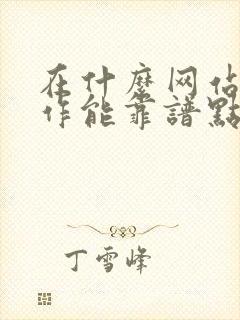 在什麽网站
作能靠譜點
丁雪峰